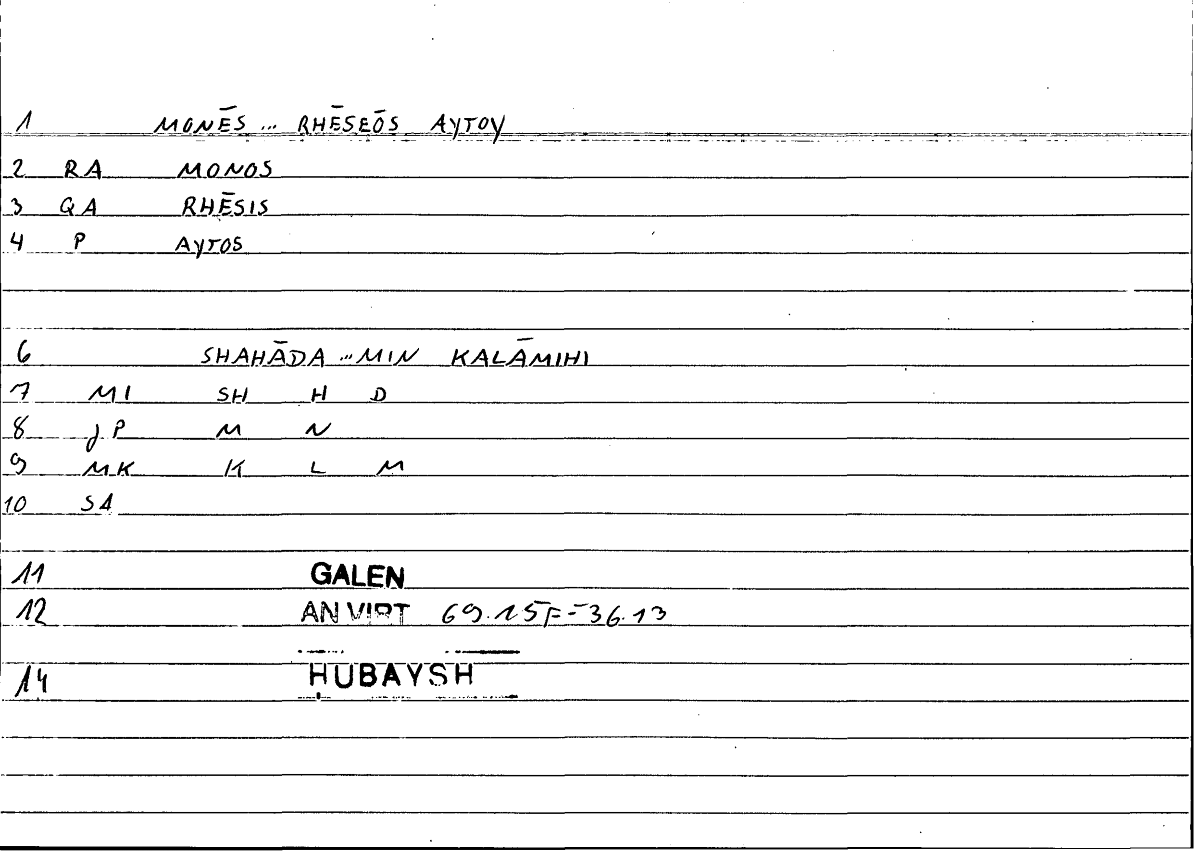 1 MONĒS ... RHĒSEŌS AYTOY
2 RA MONOS
3 QA RHĒSIS
4 P AYTOS
6 SHAHĀDA ... MIN KALĀMIHI
7 MI SH H D
8 JP M N
9 MK K L M
10 SA
11 GALEN
12 AN VIRT 69.15F=36.13
14 HUBAYSH